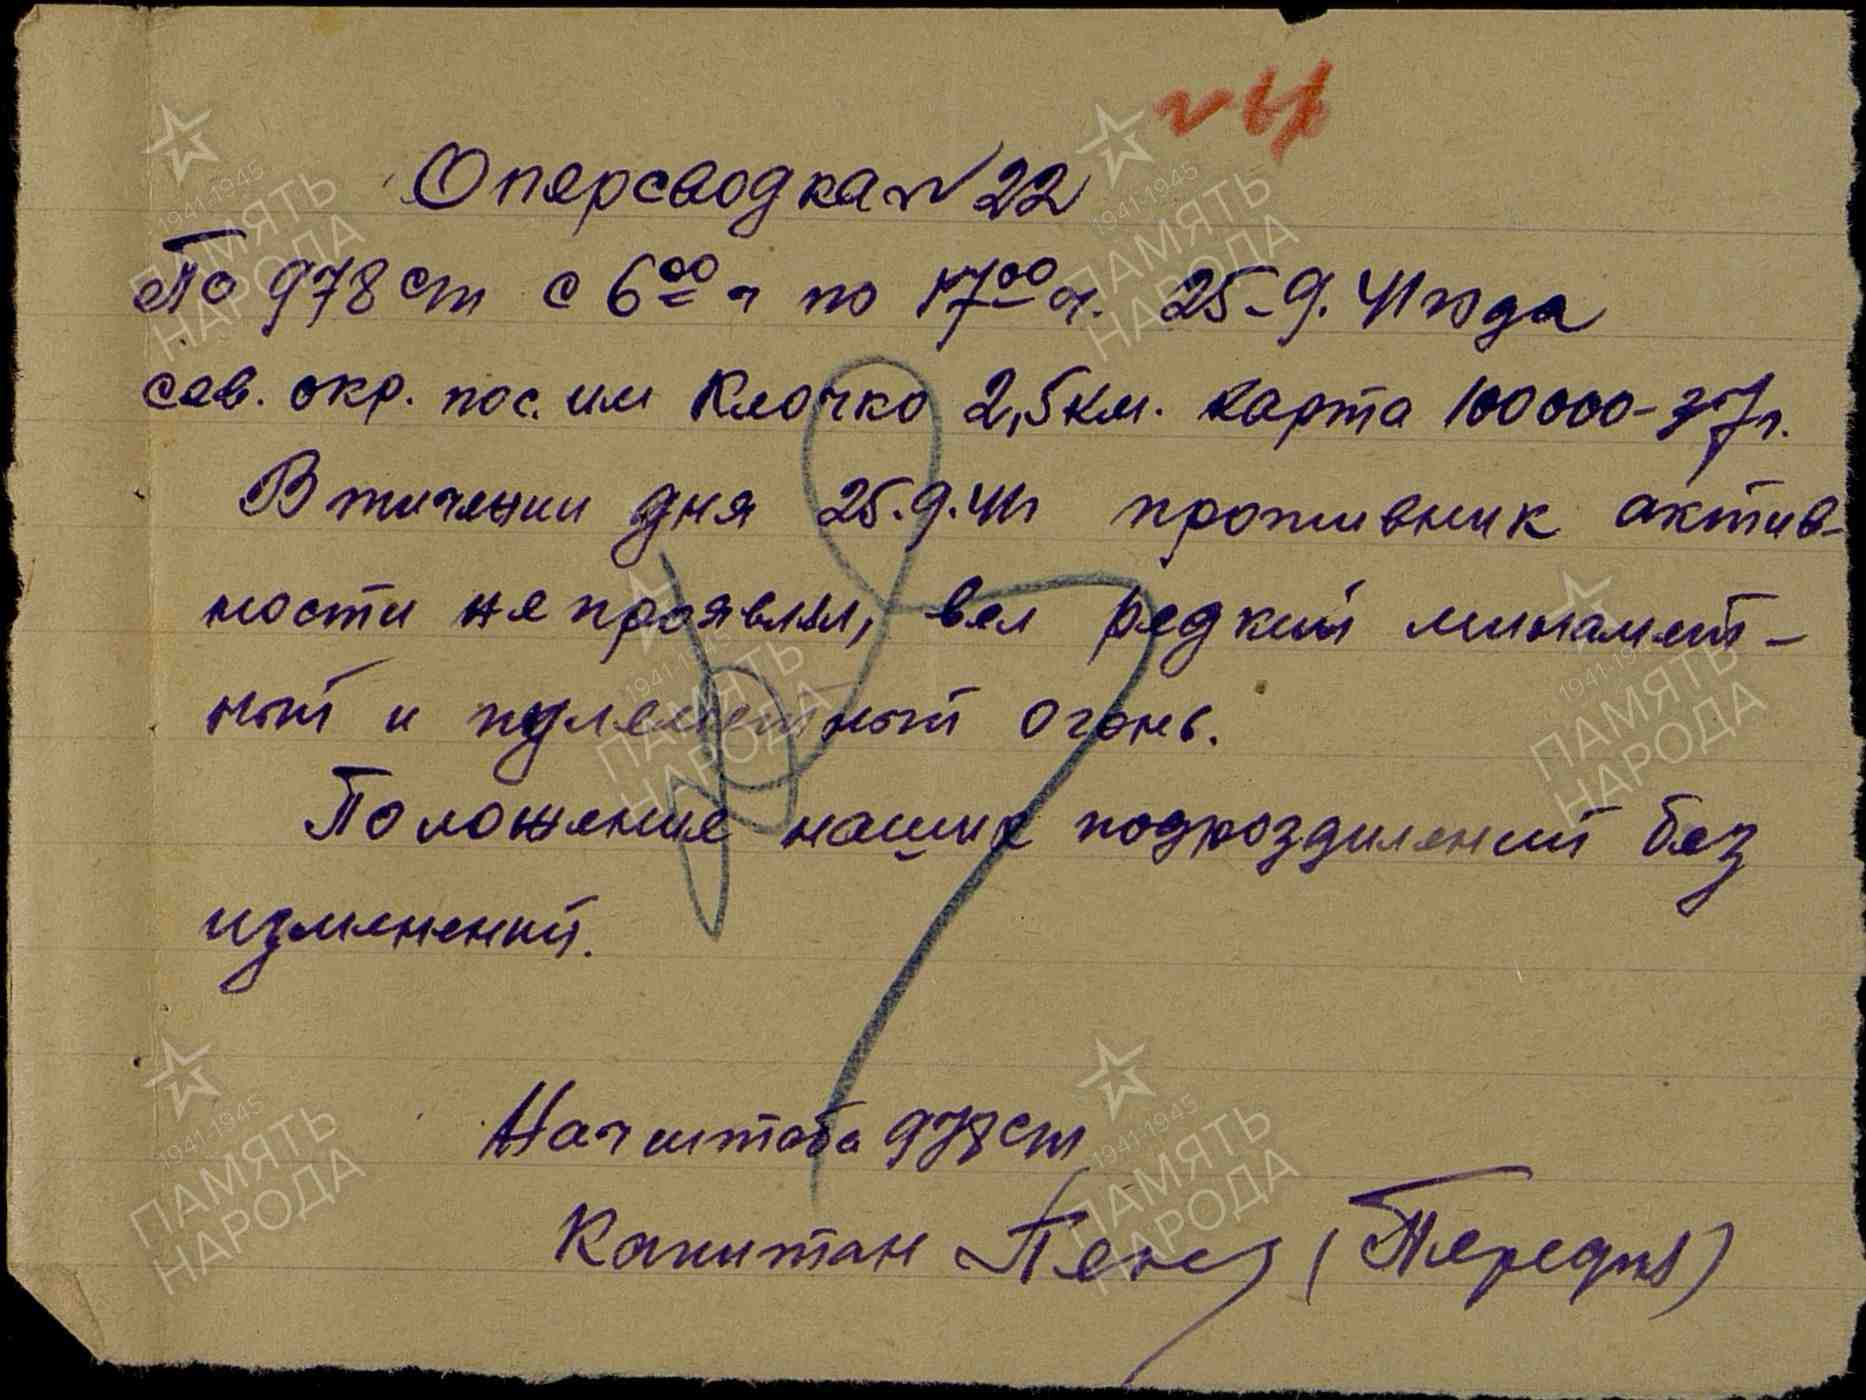 Оперсводка N 22
По 978 сп с 6 00 ч по 17 00 ч. 25-9. 41 года
сев. окр. пос. им Клочко 2,5 км. карта 100000-37г.
В течении дня 25.9.41г противник актив-
ности не проявлял, вел редкий минамет-
ный и пулеметный огонь.
Положение наших подразделений без
изменений.
Нач штаба 978 сп
Капитан
1941-1945
ПАМЯТЬ
НАРОДА
1941-1945
ПАМЯТЬ
НАРОДА
1941-1945
ПАМЯТЬ
НАРОДА
1941-1945
ПАМЯТЬ
НАРОДА
1941-1945
ПАМЯТЬ
НАРОДА
1941-1945
ПАМЯТЬ
НАРОДА